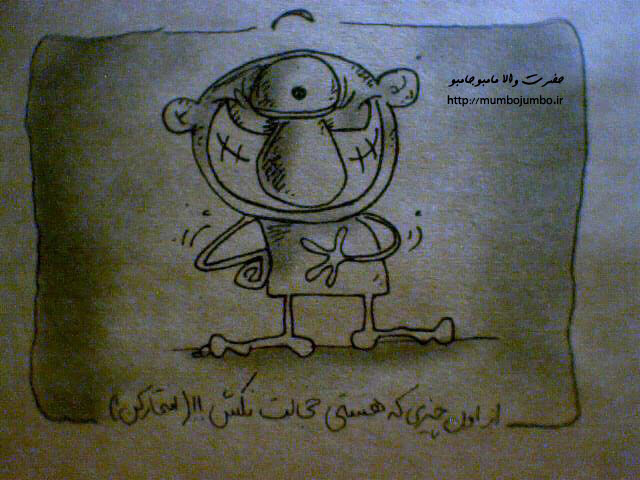 حضرت والا مامبو جامبو
http://mumbojumbo.ir
از اون چیزی که هستی خجالت نکش !! (افتخار کن)